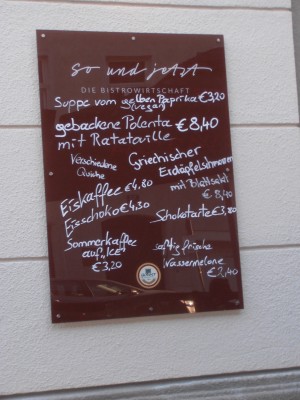 so und jetzt
DIE BISTROWIRTSCHAFT
Suppe vom gelben Paprika €3,20
(vegan)
gebackene Polenta €8,40
mit Ratataille
Verschiedene
Quiche
Griechischer
Erdäpfelschmarren
mit Blattsalat
€ 8,40
Eiskaffee €4,80
Eisschoko €4,30
Schokotarte €3,80
Sommerkaffee
auf „Ice"
€3,20
saftig frische
Wassermelone
€2,40